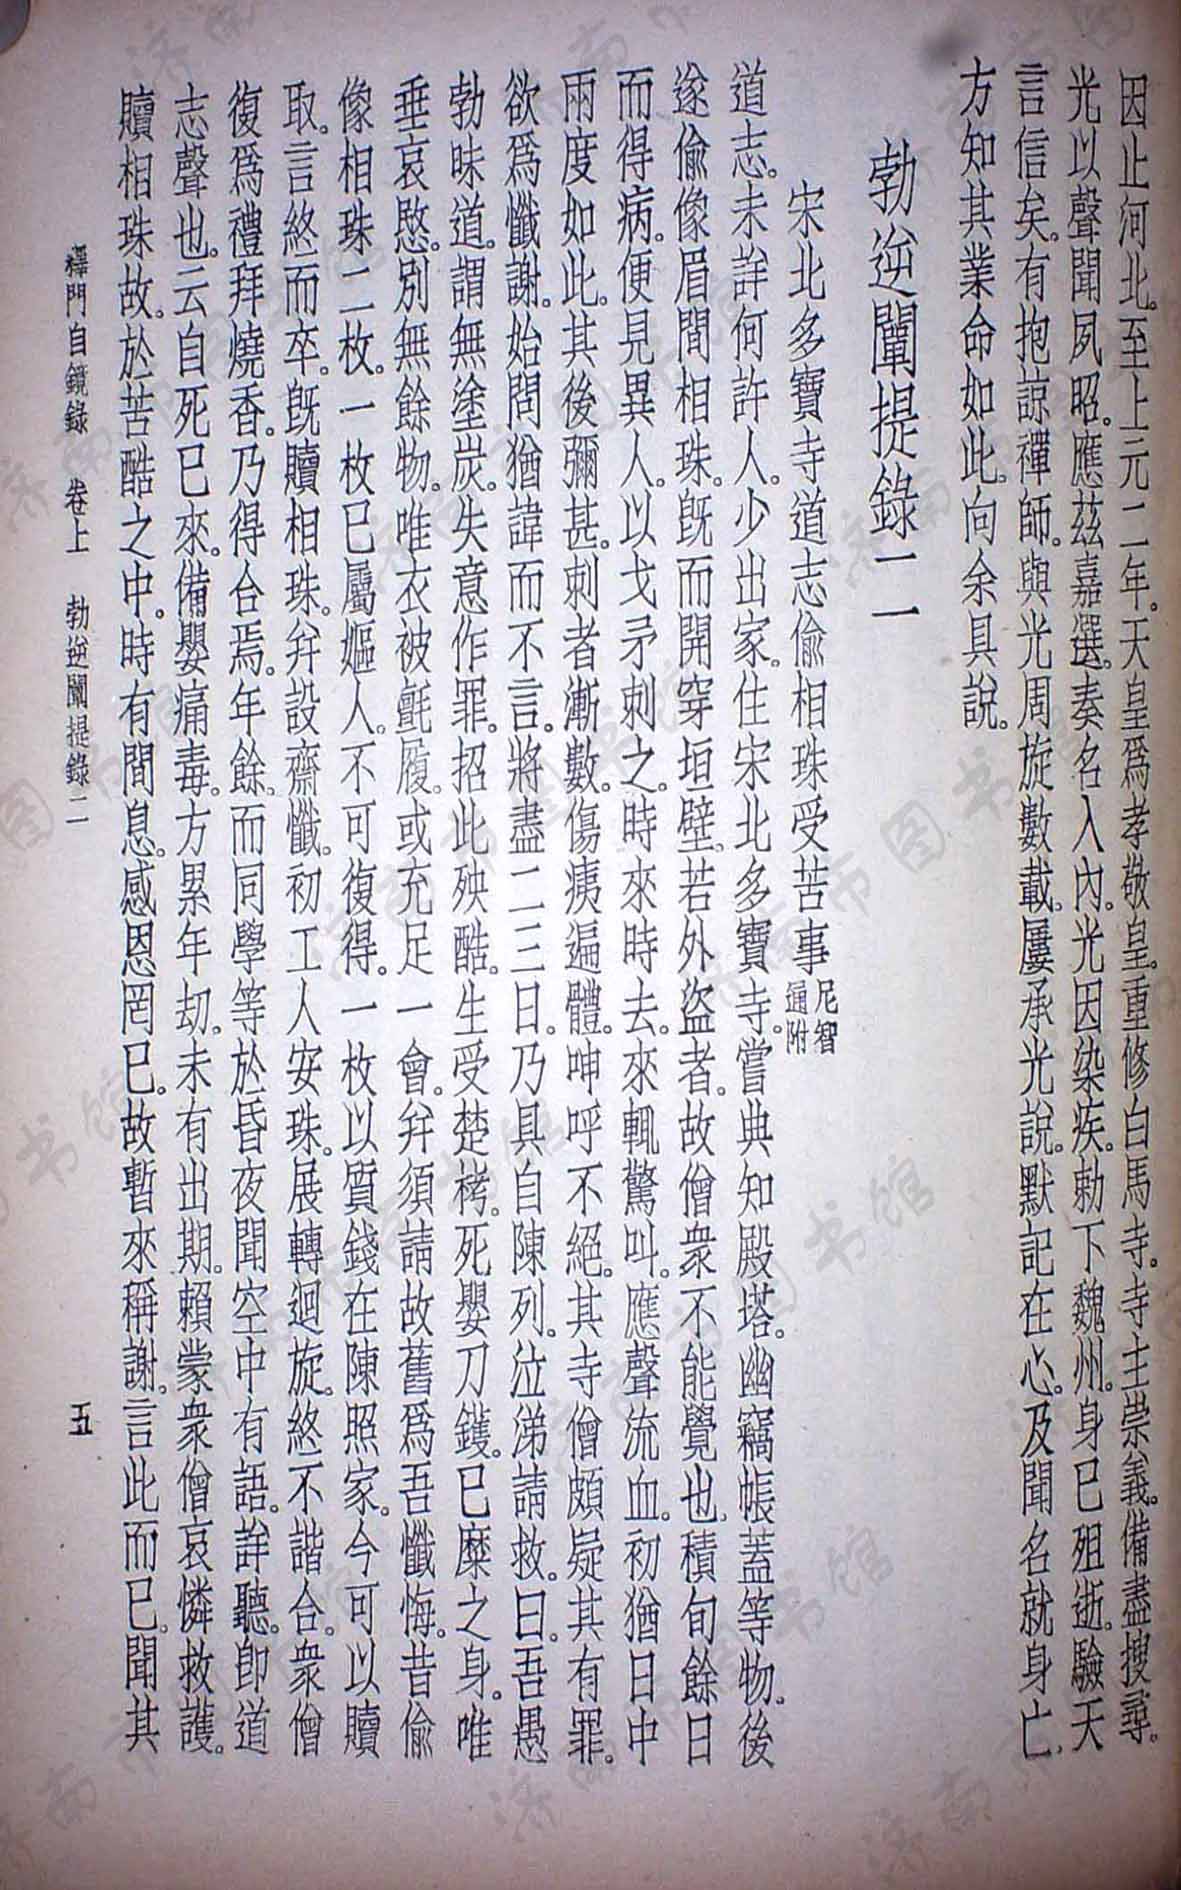 因止河北。至上元二年。天皇爲孝敬皇。重修白馬寺。寺主崇義。備盡搜尋。
光以聲聞夙昭。應茲嘉選。奏名入內。光因染疾。勅下魏州。身已殂逝。驗天
言信矣。有抱諒禪師。與光周旋數載。屢承光說。默記在心。及聞名就身亡。
方知其業命如此。向余具說。
勃逆闡提錄二
宋北多寶寺道志偷相珠受苦事 尼智通附
道志。未詳何許人。少出家。住宋北多寶寺。嘗典知殿塔。幽竊帳蓋等物。後
遂偷像眉間相珠。旣而開穿垣壁。若外盜者。故僧衆不能覺也。積旬餘日
而得病。便見異人。以戈矛刺之。時來時去。來輒驚叫。應聲流血。初猶日中
兩度如此。其後彌甚。刺者漸數。傷痍遍體。呻呼不絕。其寺僧頗疑其有罪。
欲爲懺謝。始問猶諱而不言。將盡二三日。乃具自陳列。泣涕請救。曰。吾愚
勃昧道。謂無塗炭。失意作罪。招此殃酷。生受楚栲。死嬰刀鑊。已糜之身。唯
垂哀愍。別無餘物。唯衣被氈履。或充足一會。并須請故舊爲吾懺悔。昔偷
像相珠二枚。一枚已屬嫗人。不可復得。一枚以質錢在陳照家。今可以贖
取。言終而卒。旣贖相珠。并設齋懺。初工人安珠。展轉迴旋。終不諧合。衆僧
復爲禮拜燒香。乃得合焉。年餘。而同學等於昏夜聞空中有語。詳聽。卽道
志聲也。云自死已來。備嬰痛毒。方累年劫。未有出期。賴蒙衆僧哀憐救護。
贖相珠故。於苦酷之中。時有間息。感恩罔已。故暫來稱謝。言此而已。聞其
釋門自鏡錄 卷上 勃逆闡提錄二 五
济南市图书馆